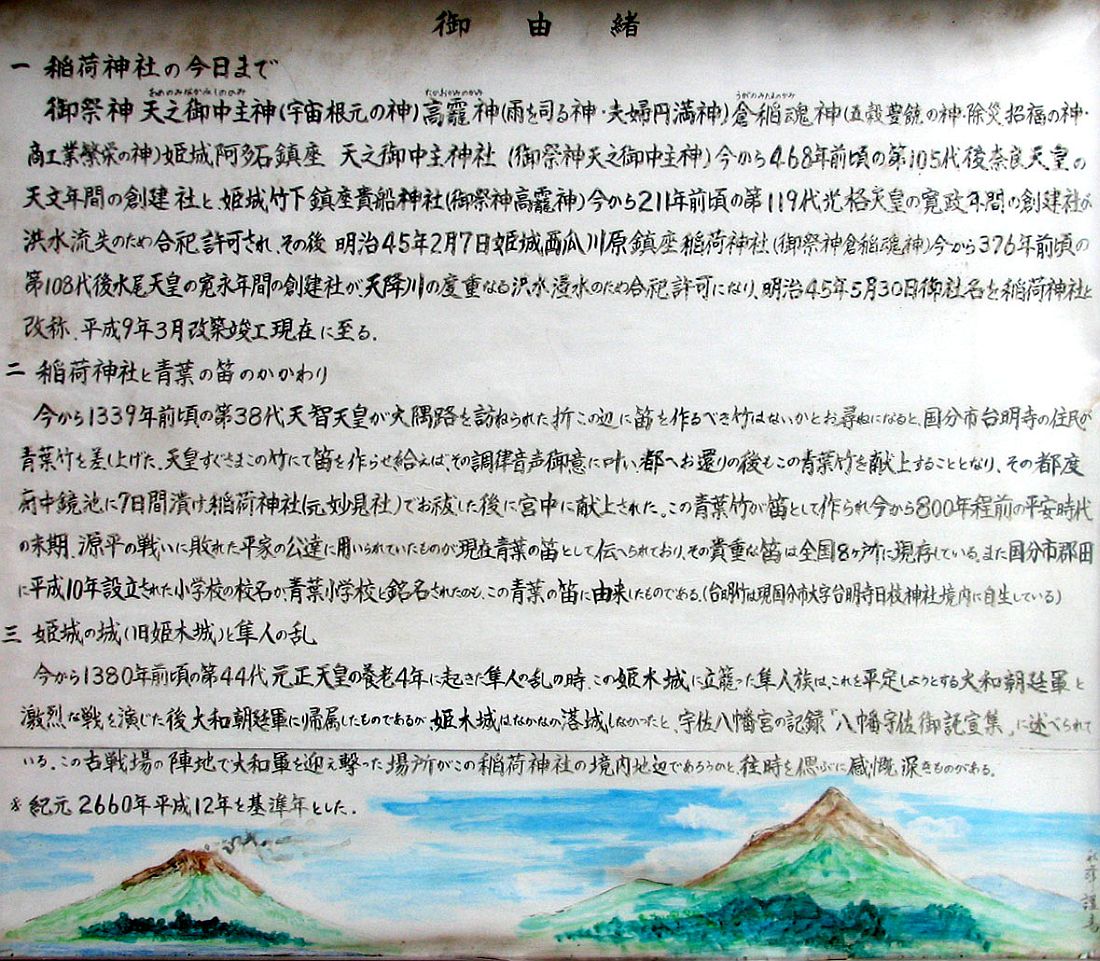 御由緒
一 稲荷神社の今日まで
あめのみなかぬしのかみ たかおかみのかみ うがのみたまのかみ
御祭神 天之御中主神(宇宙根元の神)高龗神(雨を司る神・夫婦円満神)倉稲魂神(五穀豊饒の神・除災招福の神・
商工業繁栄の神)姫城阿多石鎮座 天之御中主神社 (御祭神天之御中主神)今から468年前頃の第105代後奈良天皇の
天文年間の創建社と、姫城竹下鎮座貴船神社(御祭神高龗神)今から211年前頃の第119代光格天皇の寛政年間の創建社が
洪水流失のため合祀許可され、その後 明治45年2月7日姫城西瓜川原鎮座稲荷神社(御祭神倉稲魂神)今から376年前頃の
第108代後水尾天皇の寛永年間の創建社が、天降川の度重なる洪水浸水のため合祀許可になり、明治45年5月30日御社名を稲荷神社と
改称、平成9年3月改築竣工現在に至る。
二 稲荷神社と青葉の笛のかかわり
今から1339年前頃の第38代天智天皇が大隅路を訪ねられた折この辺に笛を作るべき竹はないかとお尋ねになると、国分市台明寺の住民が
青葉竹を差し上げた、天皇すぐさまこの竹にて笛を作らせ給えば、その調律音声御意に叶い都へお還りの後もこの青葉竹を献上することとなり、その都度
府中鏡池に7日間漬け稲荷神社(元妙見社)でお祓した後に宮中に献上された。この青葉竹が笛として作られ今から800年程前の平安時代
の末期、源平の戦いに敗れた平家の公達に用いられていたものが現在青葉の笛として伝へられており、その貴重な笛は全国8ヶ所に現存している。また国分市郡田
に平成10年設立された小学校の校名が、青葉小学校と銘名されたのも、この青葉の笛に由来したものである。(台明竹は現国分市大字台明寺日枝神社境内に自生している)
三 姫城の城(旧姫木城)と隼人の乱
今から1380年前頃の第44代元正天皇の養老4年に起きた隼人の乱の時、この姫木城に立籠った隼人族は、これを平定しようとする大和朝廷軍と
激烈な戦を演じた後大和朝廷軍に帰属したものであるが、姫木城はなかなか落城しなかったと、宇佐八幡宮の記録『八幡宇佐御託宣集』に述べられて
いる。この古戦場の陣地で大和軍を迎え撃った場所がこの稲荷神社の境内地辺であろうかと、往時を偲ぶに感慨深きものがある。
※ 紀元2660年平成12年を基準年とした.